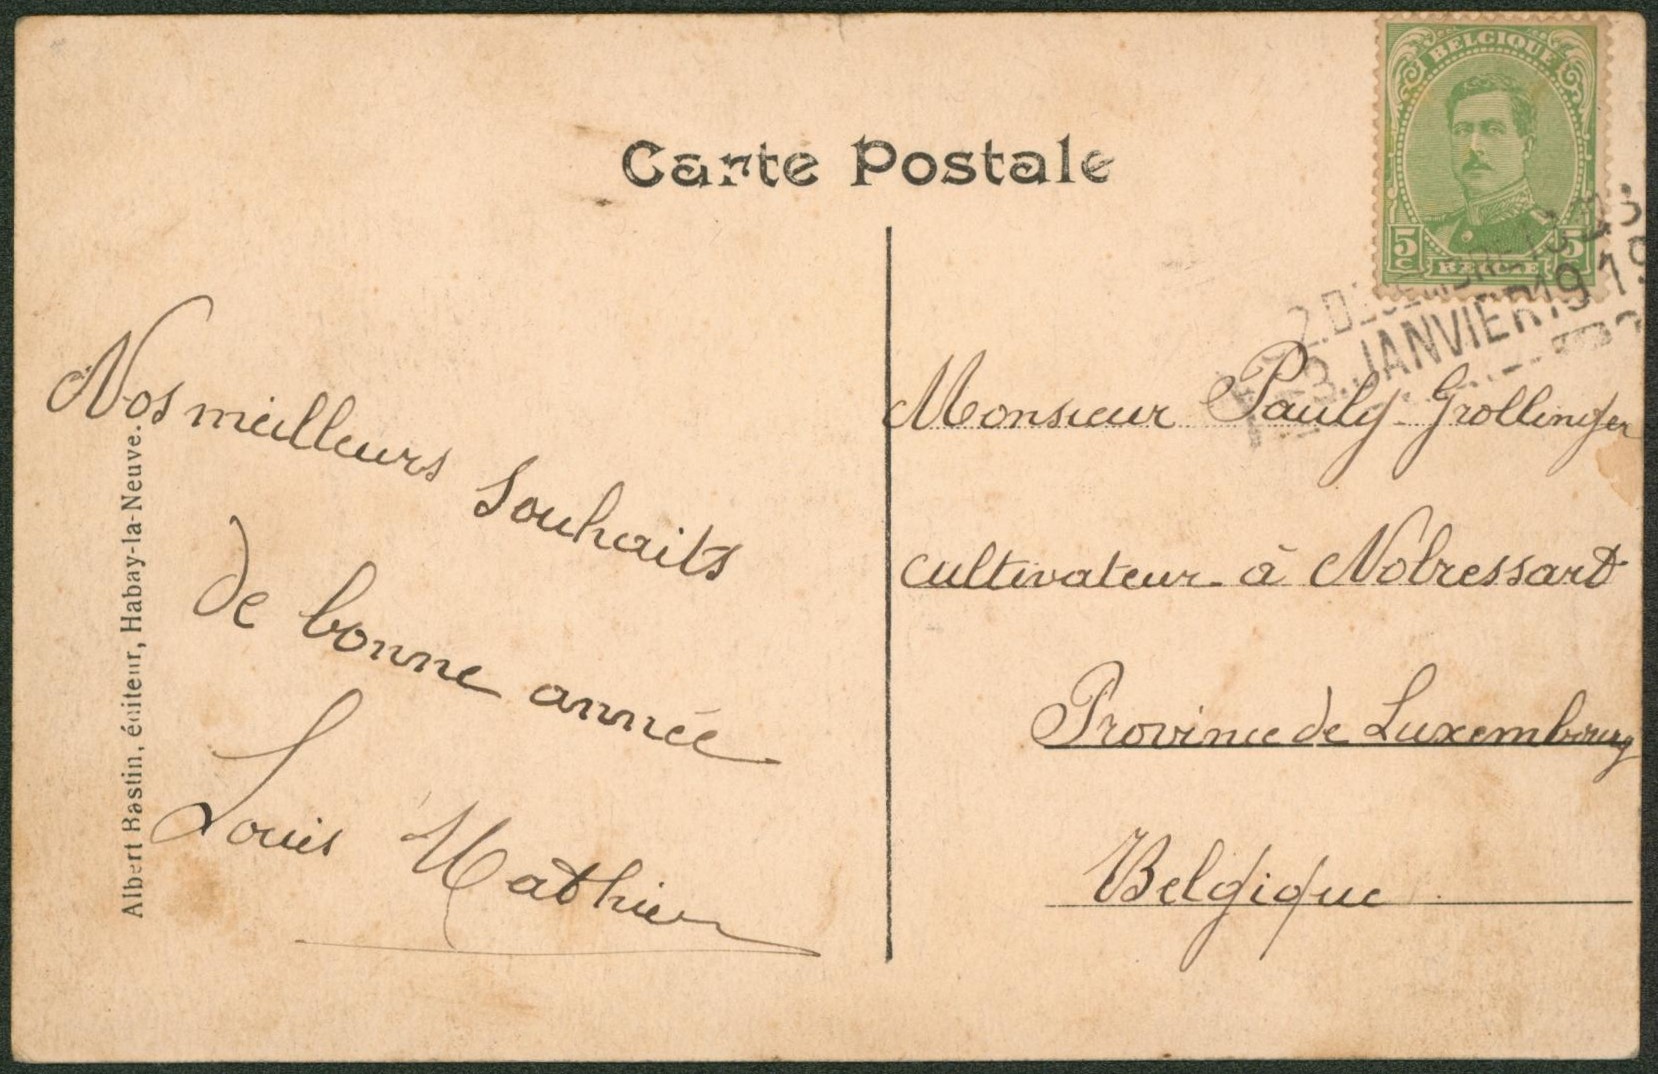 Carte Postale
BELGIQUE
5c 5c
BELGIE
2.DECEMBRE
3.JANVIER 1919
Nos meilleurs souhaits
de bonne année
Louis Mathieu
Monsieur Pauly-Grollinger
cultivateur à Nobressart
Province de Luxembourg
Belgique
Albert Bastin, éditeur, Habay-la-Neuve.